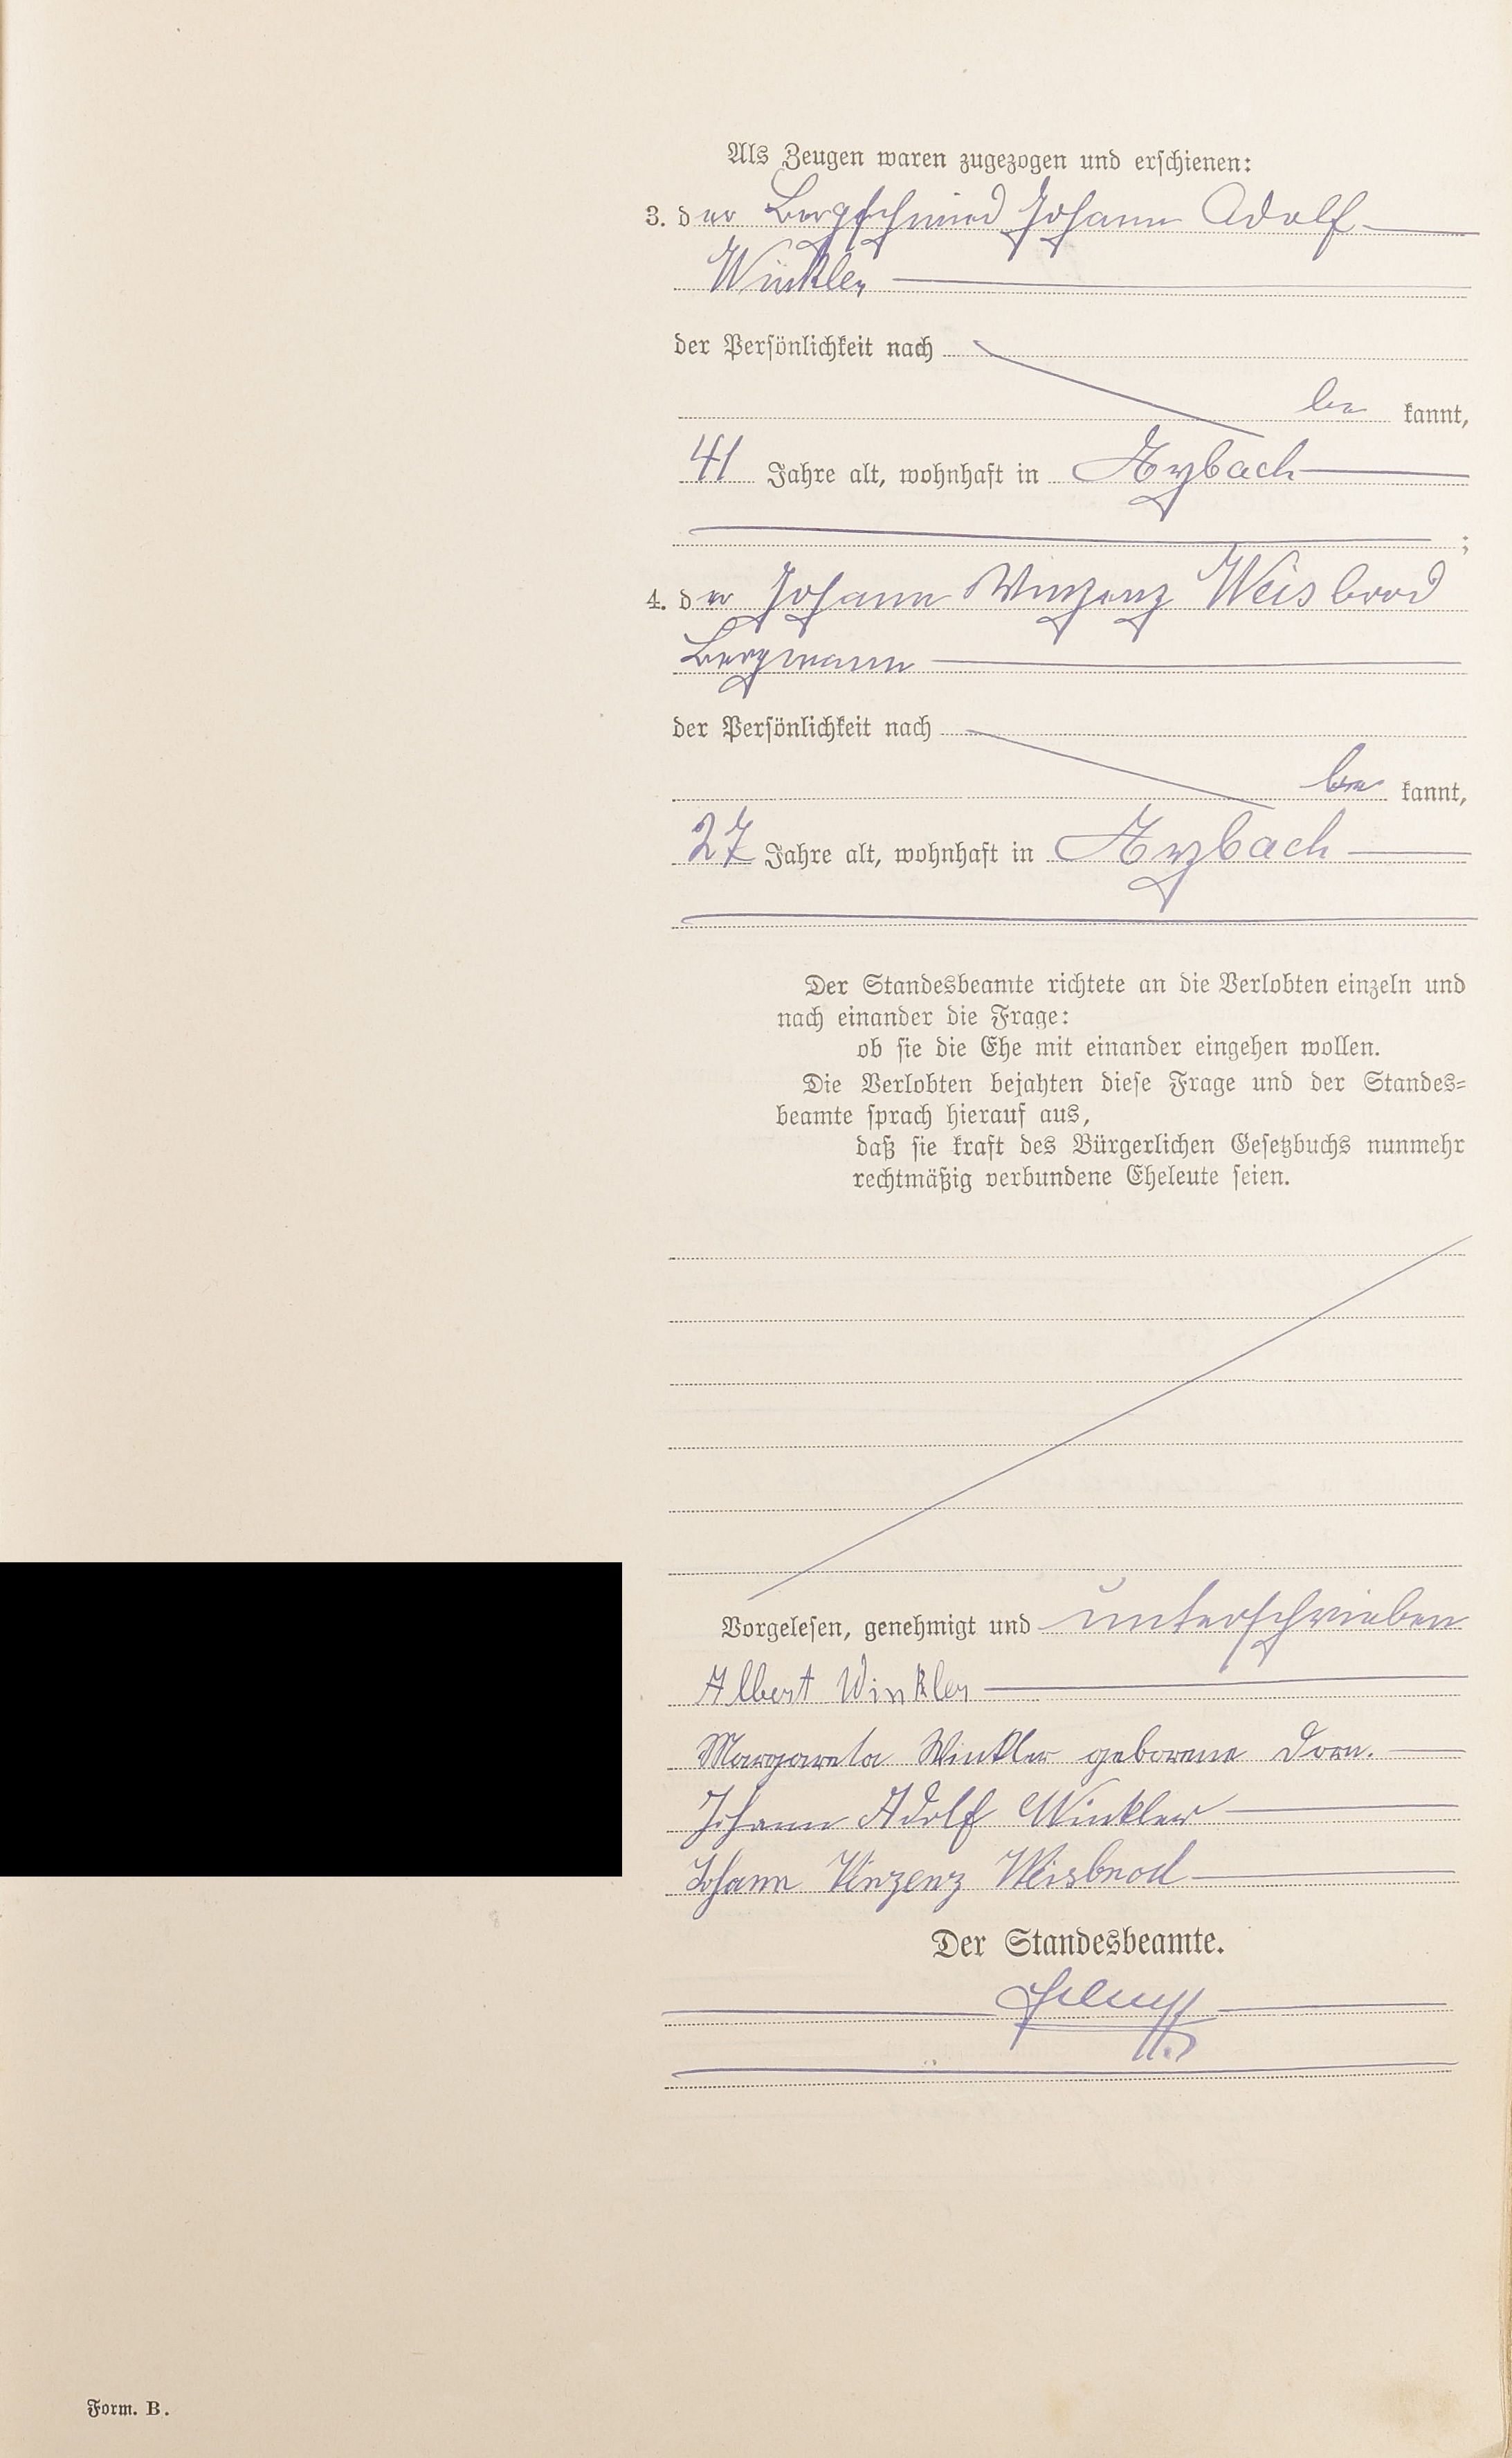 Als Zeugen waren zugezogen und erschienen:
3. der Bergschmied Johann Adolf
Winkler
der Persönlichkeit nach
be kannt,
41 Jahre alt, wohnhaft in Arzbach
;
4. der Johann Vinzenz Weisbrod
Bergmann
der Persönlichkeit nach
be kannt,
27 Jahre alt, wohnhaft in Arzbach
Der Standesbeamte richtete an die Verlobten einzeln und
nach einander die Frage:
ob sie die Ehe mit einander eingehen wollen.
Die Verlobten bejahten diese Frage und der Standes-
beamte sprach hierauf aus,
daß sie kraft des Bürgerlichen Gesetzbuchs nunmehr
rechtmäßig verbundene Eheleute seien.
Vorgelesen, genehmigt und unterschrieben
Albert Winkler
Margareta Winkler geborene Dorn.
Johann Adolf Winkler
Johann Vinzenz Weisbrod
Der Standesbeamte.
Form. B.